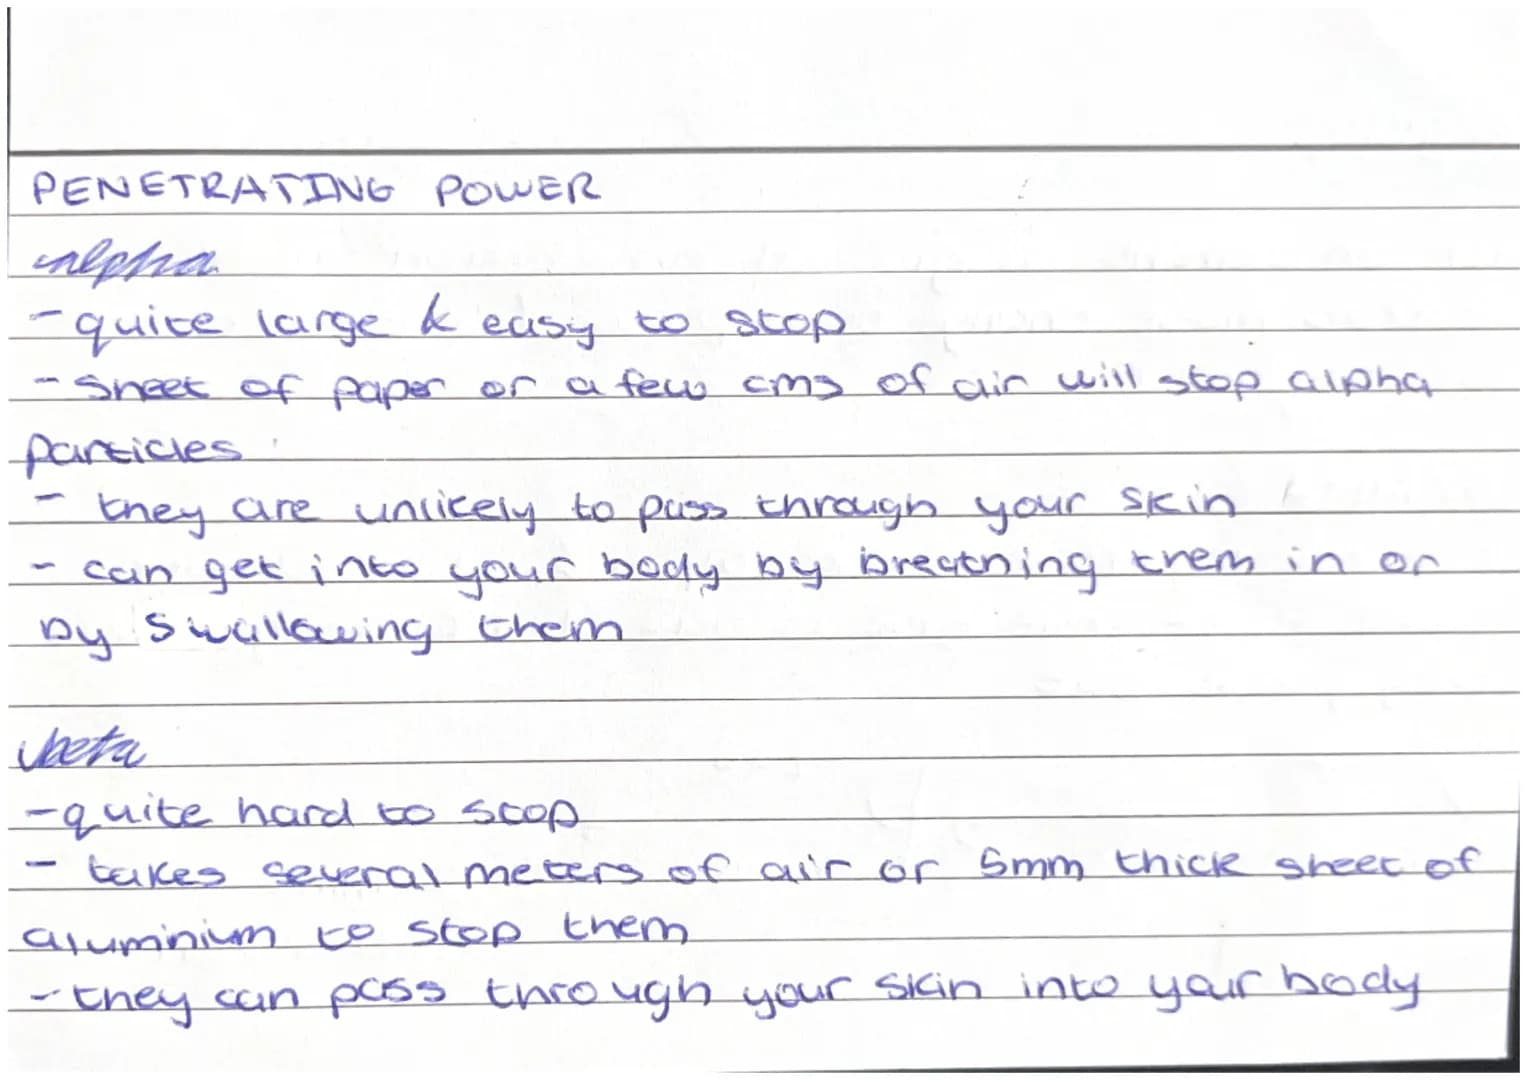 PENETRATING POWER
alpha
- quite large & easy to stop
- sheet of paper or a few cms of air will stop alpha
particles
- they are unlikely to pass through your skin
- can get into your body by breathing them in or
by swallowing them
beta
- quite hard to stop
- takes several meters of air or 5mm thick sheet of
aluminium to stop them
- they can pass through your skin into your body